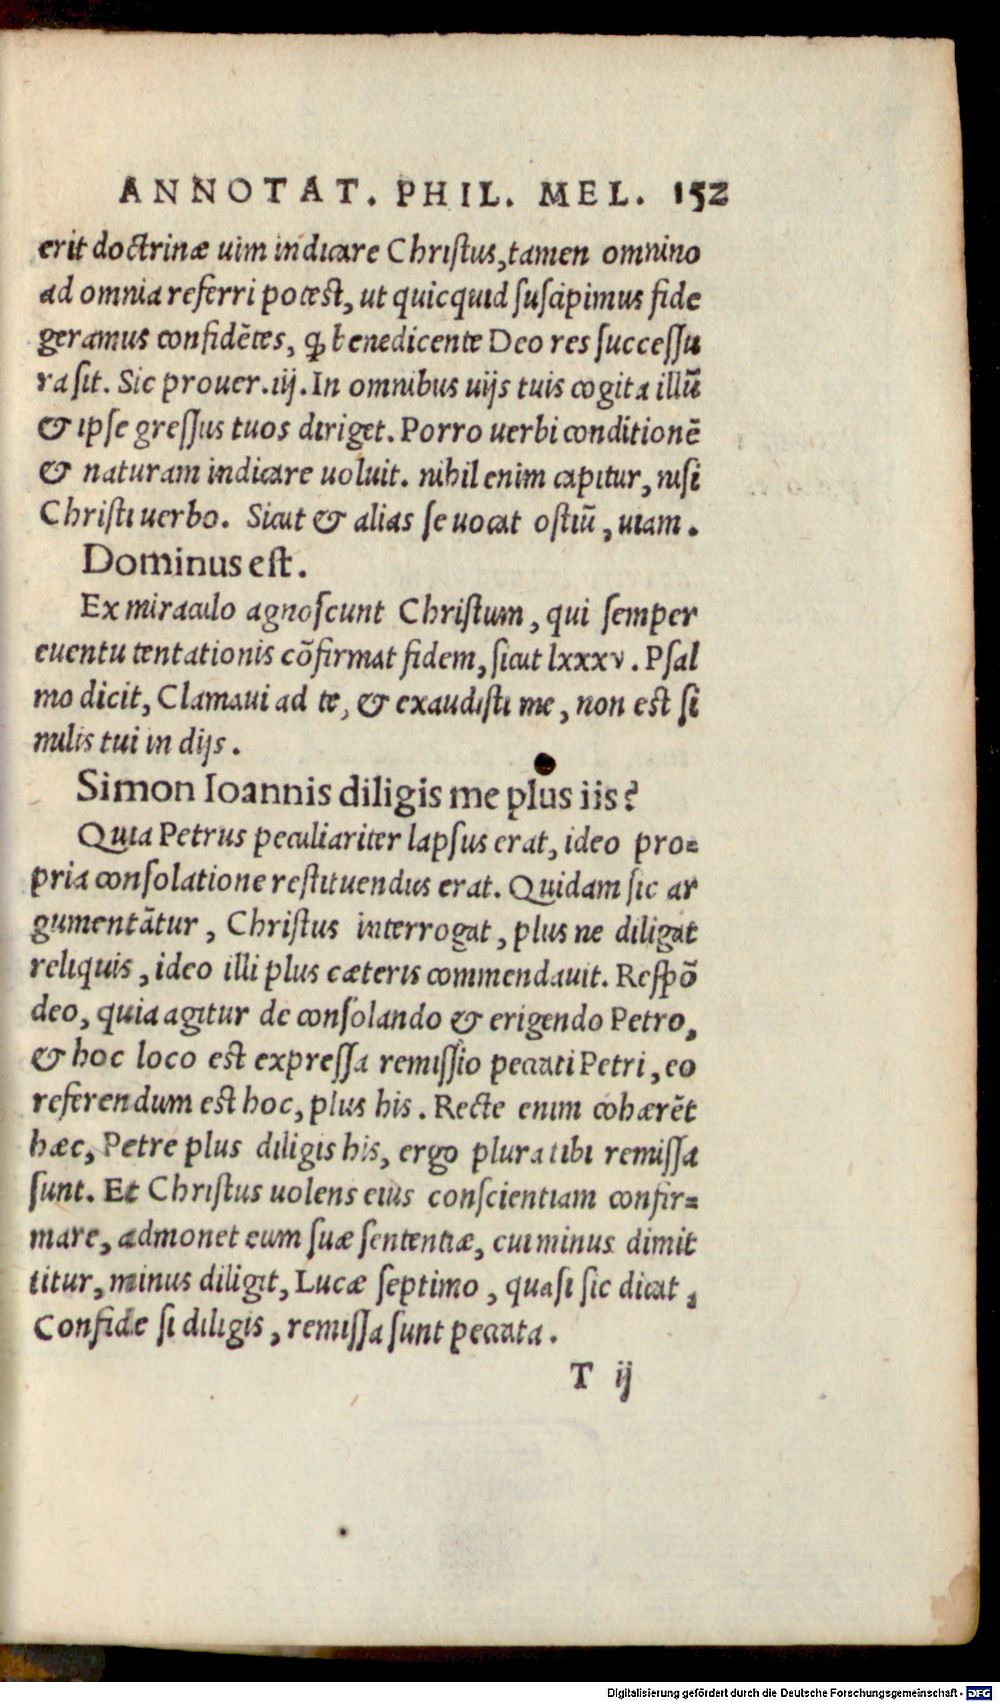 ANNOTAT. PHIL. MEL. 152
erit doctrinæ uim indicare Christus, tamen omnino
ad omnia referri potest, ut quicquid suscipimus fide
geramus confidẽtes, ꝙ benedicente Deo res successu
ra sit. Sic prouer. iij. In omnibus uijs tuis cogita illũ
& ipse gressus tuos diriget. Porro uerbi conditionẽ
& naturam indicare uoluit. nihil enim capitur, nisi
Christi uerbo. Sicut & alias se uocat ostiũ, uiam.
Dominus est.
Ex miraculo agnoscunt Christum, qui semper
euentu tentationis cõfirmat fidem, sicut lxxxv. Psal
mo dicit, Clamaui ad te, & exaudisti me, non est si
milis tui in dijs.
Simon Ioannis diligis me plus iis?
Quia Petrus peculiariter lapsus erat, ideo pro=
pria consolatione restituendus erat. Quidam sic ar
gumentãtur, Christus interrogat, plus ne diligat
reliquis, ideo illi plus cæteris commendauit. Respõ
deo, quia agitur de consolando & erigendo Petro,
& hoc loco est expressa remissio peccati Petri, eo
referendum est hoc, plus his. Recte enim cohærẽt
hæc, Petre plus diligis his, ergo plura tibi remissa
sunt. Et Christus uolens eius conscientiam confir=
mare, admonet eum suæ sententiæ, cui minus dimit
titur, minus diligit, Lucæ septimo, quasi sic dicat,
Confide si diligis, remissa sunt peccata.
T ij
Digitalisierung gefördert durch die Deutsche Forschungsgemeinschaft - DFG